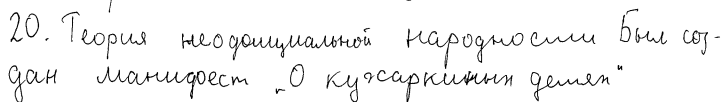 20. Теория неофициальной народности Был соз-
дан манифест „О кухаркиных детях“